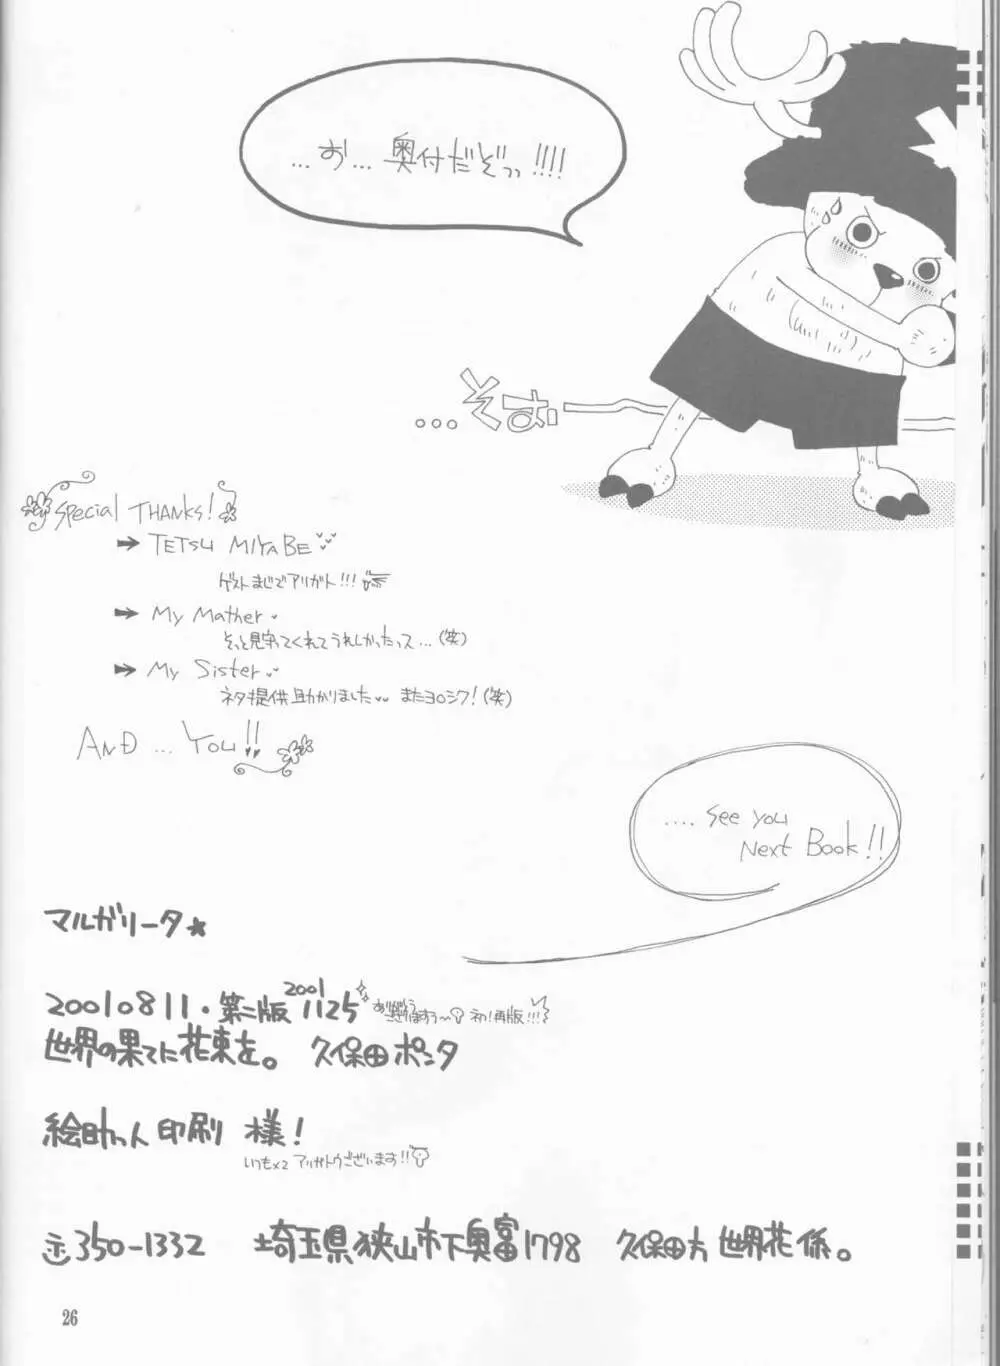 ...お...奥付だぞっっ!!!!
...そお"
Special THANKS!
➡ TETSU MIYABE
ゲストまじでアリガト!!!
➡ My Mather
そっと見守ってくれてうれしかったっス...(笑)
➡ My Sister
ネタ提供助かりました またヨロシク!(笑)
AND ... You!!
.... See you
Next Book!!
マルガリータ★
20010811・第二版 2001 1125 ありがとうございますう〜 初!再版!!!
世界の果てに花束を。 久保田ポンタ
絵助っ人印刷 様!
いつも×2 アリガトウございます!!
〒350-1332 埼玉県狭山市下奥富1798 久保田方 世界花係。
26